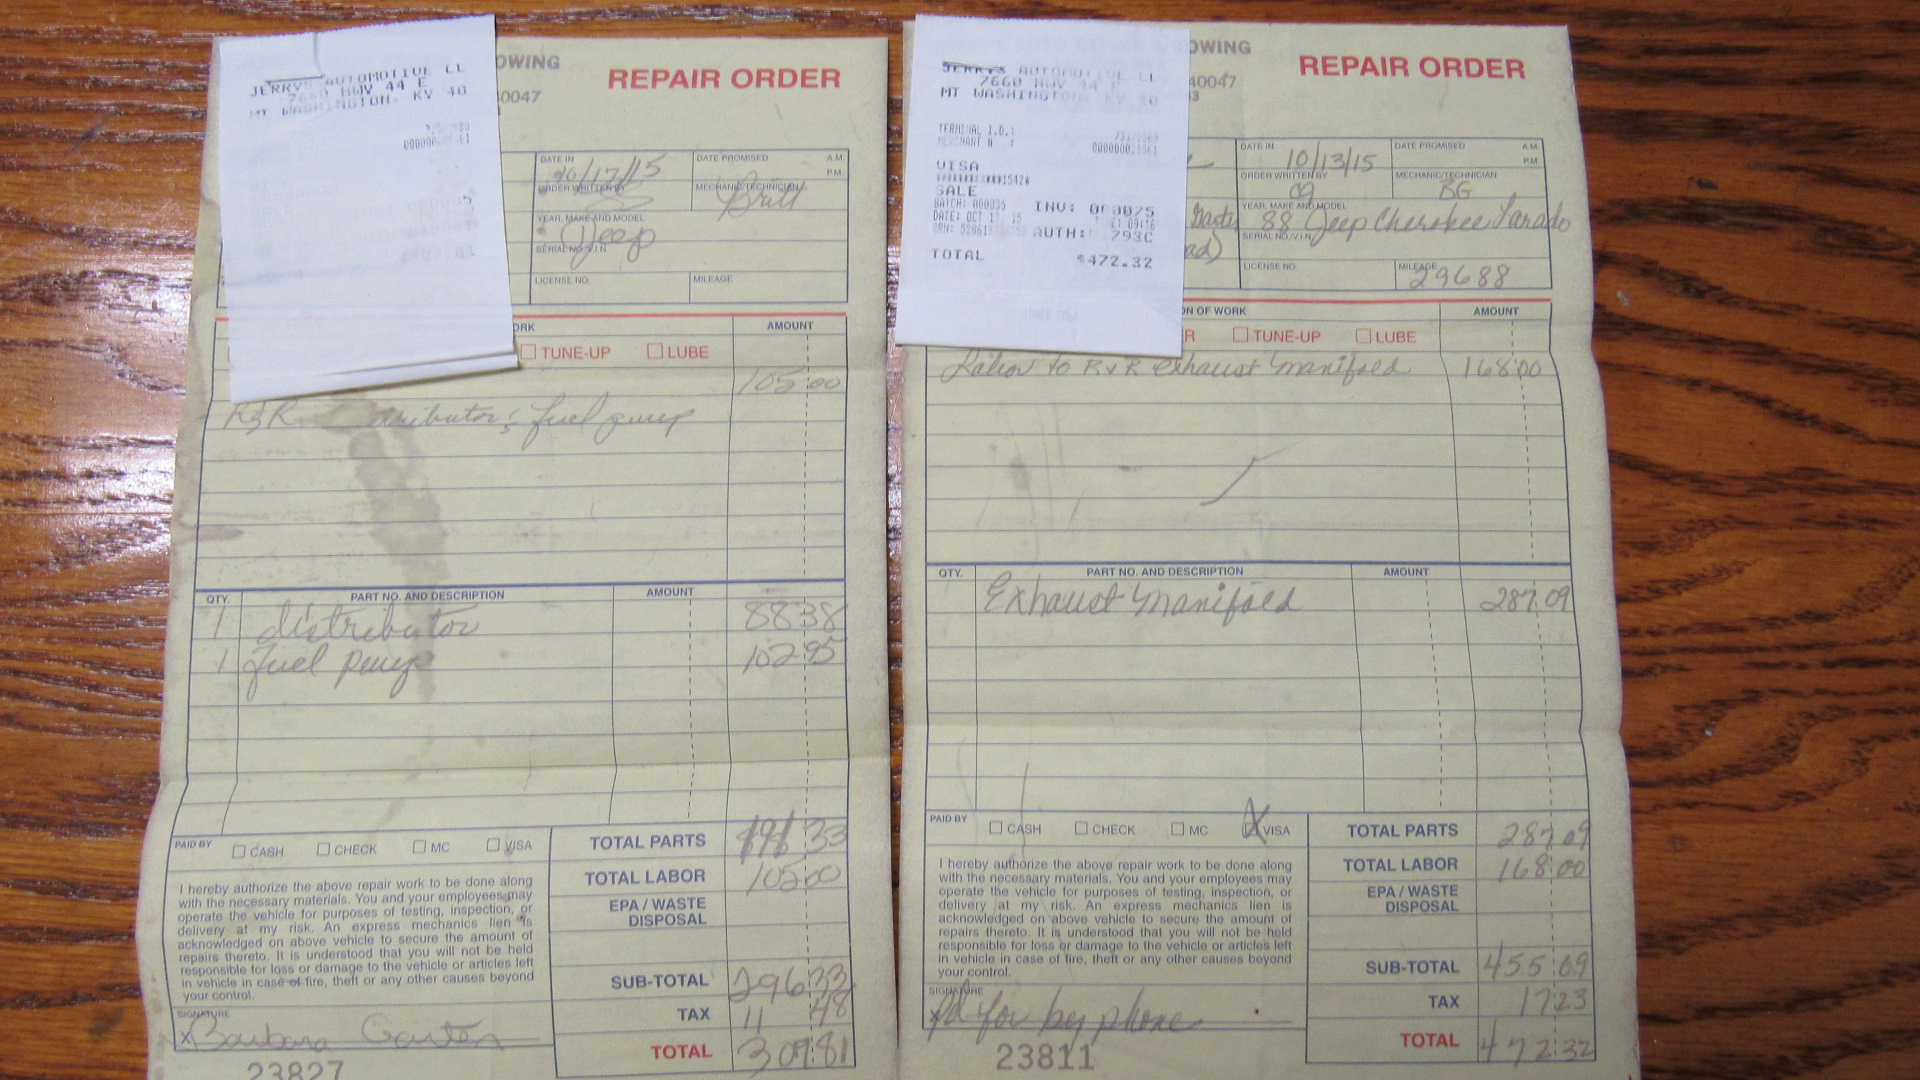 JERRYS AUTOMOTIVE LL
7660 HWY 44 E
MT WASHINGTON, KY 40
OWING
40047
REPAIR ORDER
DATE IN
10/17/15
DATE PROMISED
A.M.
P.M.
ORDER WRITTEN BY
MECHANIC/TECHNICIAN
Britt
YEAR, MAKE AND MODEL
Jeep
SERIAL NO./V.I.N.
LICENSE NO.
MILEAGE
ORK
AMOUNT
TUNE-UP
LUBE
105 00
R & R fuel pump
QTY.
PART NO. AND DESCRIPTION
AMOUNT
1 distributor 88 38
1 fuel pump 102 95
PAID BY
CASH
CHECK
MC
VISA
TOTAL PARTS 191 33
TOTAL LABOR 105 00
EPA / WASTE
DISPOSAL
SUB-TOTAL 296 33
TAX 11 48
TOTAL 307 81
I hereby authorize the above repair work to be done along
with the necessary materials. You and your employees may
operate the vehicle for purposes of testing, inspection, or
delivery at my risk. An express mechanics lien is
acknowledged on above vehicle to secure the amount of
repairs thereto. It is understood that you will not be held
responsible for loss or damage to the vehicle or articles left
in vehicle in case of fire, theft or any other causes beyond
your control.
SIGNATURE
X Barbara
23827
JERRYS AUTOMOTIVE LL
7660 HWY 44 E
MT WASHINGTON, KY 40
TERMINAL I.D.:
MERCHANT
VISA
SALE
BATCH: 000035
INV: 000075
DATE: OCT
AUTH:
TOTAL $472.32
OWING
40047
REPAIR ORDER
DATE IN
10/13/15
DATE PROMISED
A.M.
P.M.
ORDER WRITTEN BY
cg
MECHANIC/TECHNICIAN
BG
YEAR, MAKE AND MODEL
88 Jeep Cherokee Larado
SERIAL NO./V.I.N.
LICENSE NO.
MILEAGE
29688
ON OF WORK
AMOUNT
R
TUNE-UP
LUBE
Labor to R & R exhaust manifold 168 00
QTY.
PART NO. AND DESCRIPTION
AMOUNT
Exhaust manifold 287 09
PAID BY
CASH
CHECK
MC
X VISA
TOTAL PARTS 287 09
TOTAL LABOR 168 00
EPA / WASTE
DISPOSAL
SUB-TOTAL 455 09
TAX 17 23
TOTAL 472 32
I hereby authorize the above repair work to be done along
with the necessary materials. You and your employees may
operate the vehicle for purposes of testing, inspection, or
delivery at my risk. An express mechanics lien is
acknowledged on above vehicle to secure the amount of
repairs thereto. It is understood that you will not be held
responsible for loss or damage to the vehicle or articles left
in vehicle in case of fire, theft or any other causes beyond
your control.
SIGNATURE
X Pd for by phone
23811